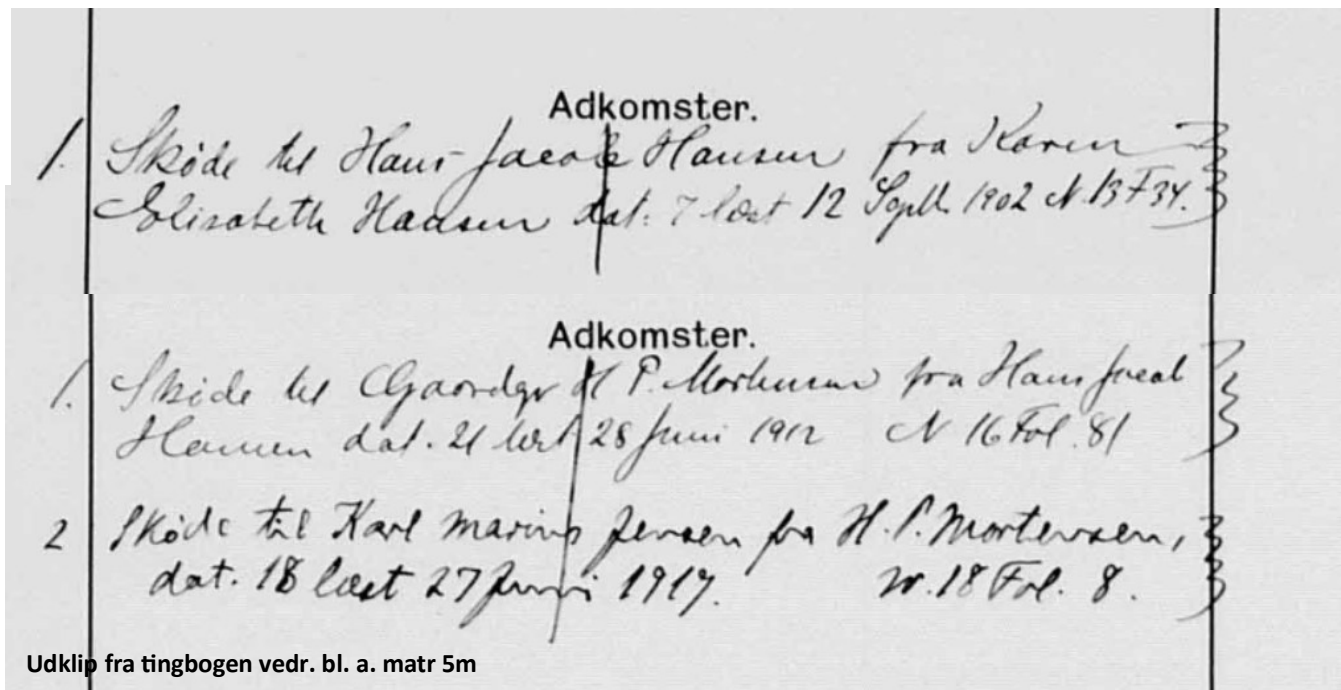 Adkomster.
1. Skøde til Hans Jacob Hansen fra Karen
Elisabeth Hansen dat: 7 læst 12 Septb. 1902 N. 13 F 34.
Adkomster.
1. Skøde til Gaardejer H P. Mortensen fra Hans Jacob
Hansen dat. 21 læst 28 Juni 1912 N 16 Fol. 81
2 Skøde til Karl Marius Jensen fra H. P. Mortensen,
dat. 18 læst 27 Juni 1917. N. 18 Fol. 8.
Udklip fra tingbogen vedr. bl. a. matr 5m